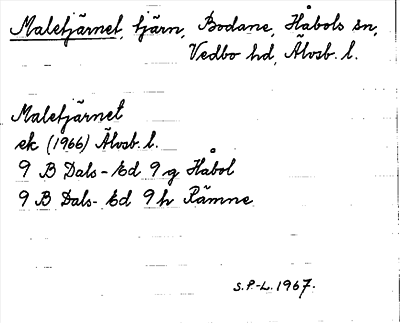 Maletjärnet, tjärn, Bodane, Håbols sn,
Vedbo hd, Älvsb. l.
Maletjärnet
ek (1966) Älvsb. l.
9 B Dals-Ed 9 g Håbol
9 B Dals-Ed 9 h Rämne
S.P.-L. 1967.